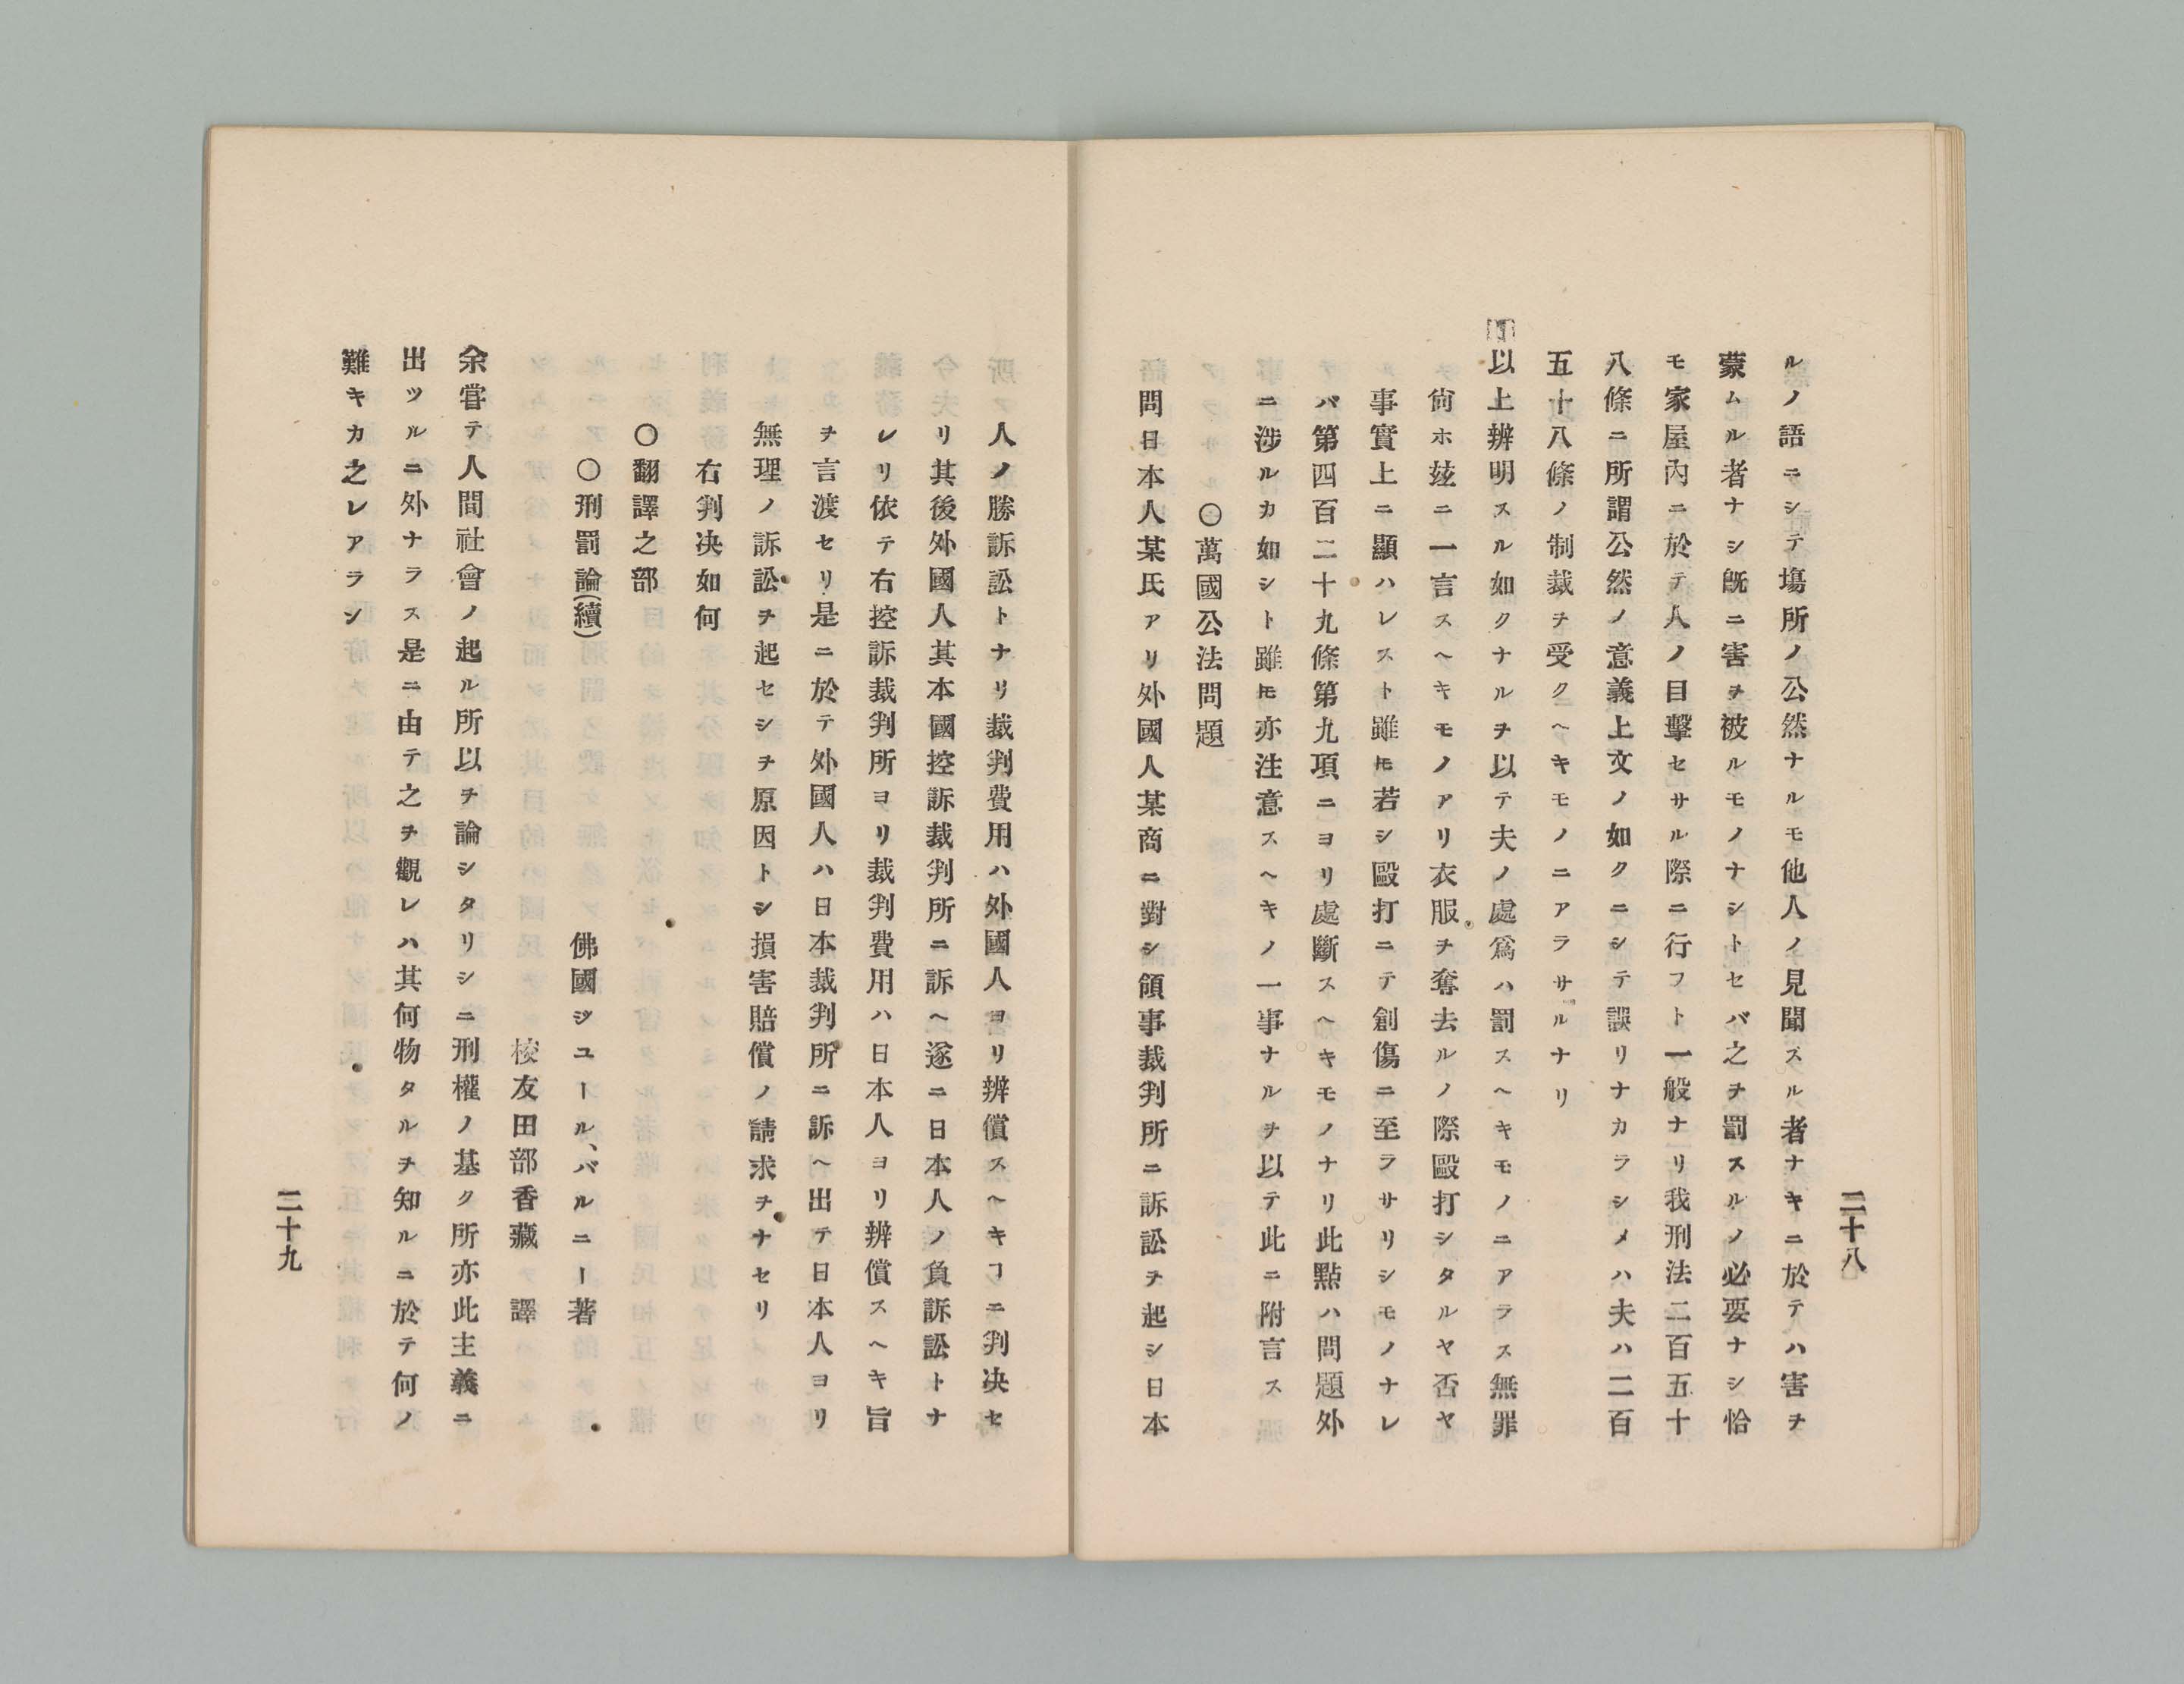 二十八
ルノ語ニシテ塲所ノ公然ナルモ他人ノ見聞スル者ナキニ於テハ害ヲ
蒙ムル者ナシ既ニ害ヲ被ルモノナシトセバ之ヲ罰スルノ必要ナシ恰
モ家屋內ニ於テ人ノ目擊セサル際ニ行フト一般ナリ我刑法二百五十
八條ニ所謂公然ノ意義上文ノ如クニシテ誤リナカラシメハ夫ハ二百
五十八條ノ制裁ヲ受クヘキモノニアラサルナリ
以上辨明スル如クナルヲ以テ夫ノ處爲ハ罰スヘキモノニアラス無罪
尙ホ玆ニ一言スヘキモノアリ衣服ヲ奪去ルノ際毆打シタルヤ否ヤ
事實上ニ顯ハレスト雖𪜈若シ毆打ニテ創傷ニ至ラサリシモノナレ
バ第四百二十九條第九項ニヨリ處斷スヘキモノナリ此點ハ問題外
ニ涉ルカ如シト雖𪜈亦注意スヘキノ一事ナルヲ以テ此ニ附言ス
〇萬國公法問題
問日本人某氏アリ外國人某商ニ對シ領事裁判所ニ訴訟ヲ起シ日本
人ノ勝訴訟トナリ裁判費用ハ外國人ヨリ辨償スヘキヿニ判决セ
リ其後外國人其本國控訴裁判所ニ訴ヘ遂ニ日本人ノ負訴訟トナ
レリ依テ右控訴裁判所ヨリ裁判費用ハ日本人ヨリ辨償スヘキ旨
ヲ言渡セリ是ニ於テ外國人ハ日本裁判所ニ訴ヘ出テ日本人ヨリ
無理ノ訴訟ヲ起セシヲ原因トシ損害賠償ノ請求ヲナセリ
右判决如何
〇翻譯之部
〇刑罰論(續)
佛國ジユール、バルニー著
校友田部香藏 譯
余嘗テ人間社會ノ起ル所以ヲ論シタリシニ刑權ノ基ク所亦此主義ニ
出ツルニ外ナラス是ニ由テ之ヲ觀レハ其何物タルヲ知ルニ於テ何ノ
難キカ之レアラン
二十九